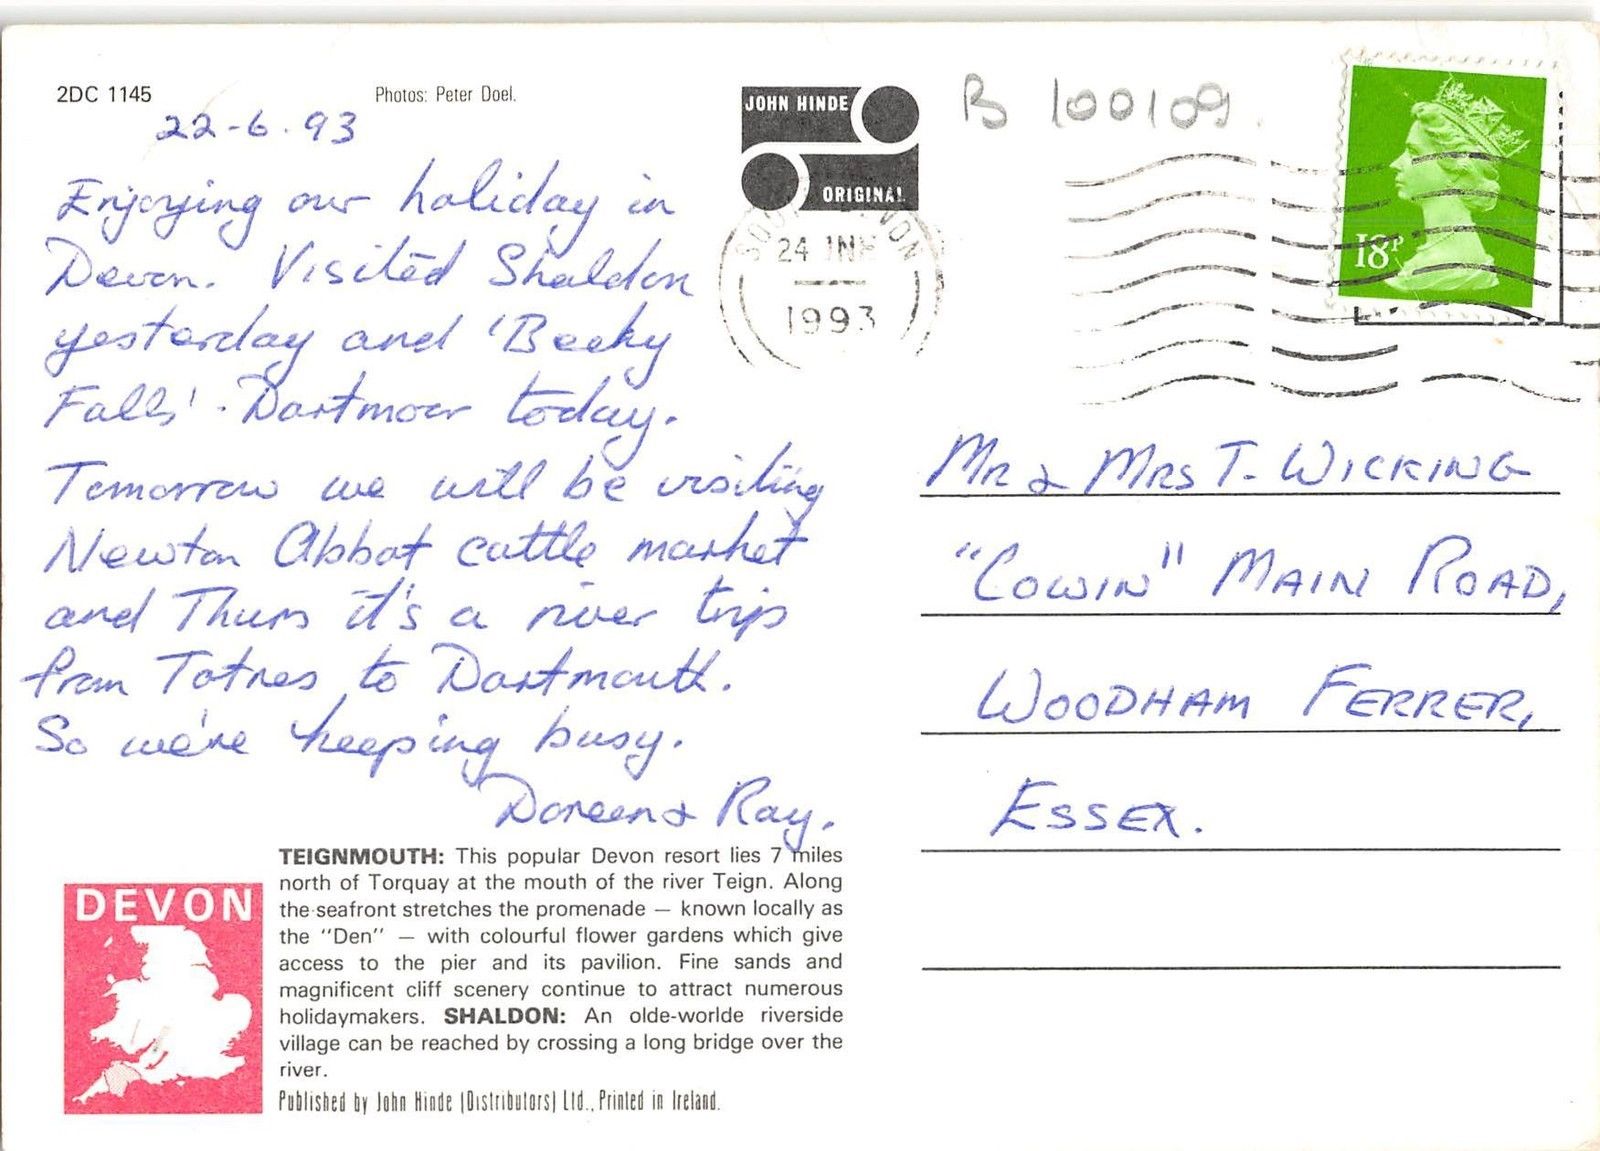 2DC 1145
Photos: Peter Doel.
22-6.93
Enjoying our holiday in
Devon. Visited Shaldon
yesterday and 'Becky
Falls' - Dartmoor today.
Tomorrow we will be visiting
Newton Abbot cattle market
and Thurs it's a river trip
from Totnes to Dartmouth.
So we're keeping busy.
Doreen & Ray.
TEIGNMOUTH: This popular Devon resort lies 7 miles
north of Torquay at the mouth of the river Teign. Along
the seafront stretches the promenade — known locally as
the "Den" — with colourful flower gardens which give
access to the pier and its pavilion. Fine sands and
magnificent cliff scenery continue to attract numerous
holidaymakers. SHALDON: An olde-worlde riverside
village can be reached by crossing a long bridge over the
river.
Published by John Hinde (Distributors) Ltd., Printed in Ireland.
DEVON
JOHN HINDE
ORIGINAL
24 JNE
1993
B 100109.
18P
MR & MRS T. WICKING
"COWIN" MAIN ROAD,
WOODHAM FERRER,
ESSEX.